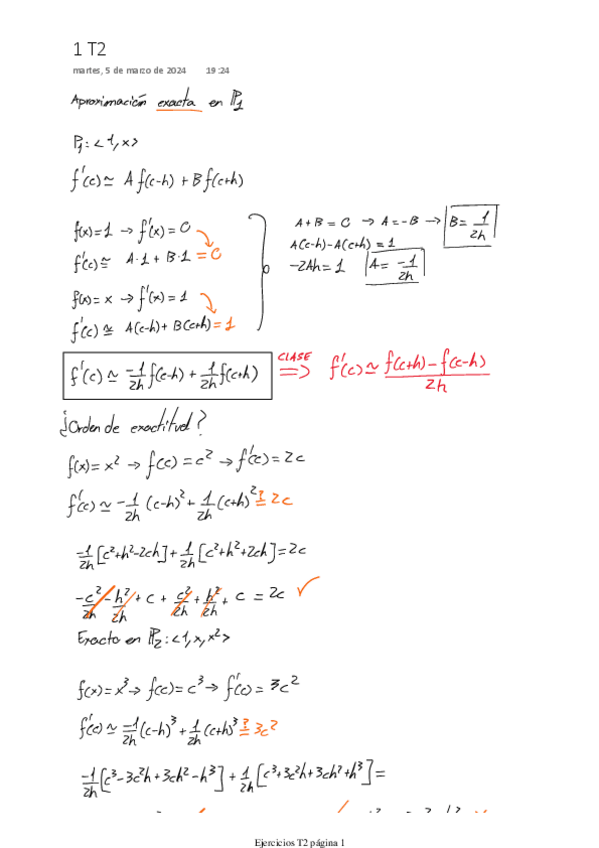 1 T2
martes, 5 de marzo de 2024 19:24
Aproximación exacta en ℙ₁
P₁: <1, x>
f'(c) ≃ A f(c-h) + B f(c+h)
f(x)=1 → f'(x) = 0
f'(c) ≃ A·1 + B·1 = 0
f(x) = x → f'(x) = 1
f'(c) ≃ A(c-h) + B(c+h) = 1
A + B = 0 → A = -B → B = 1/2h
A(c-h) - A(c+h) = 1
-2Ah = 1 A = -1/2h
f'(c) ≃ -1/2h f(c-h) + 1/2h f(c+h) CLASE ⇒ f'(c) ≃ f(c+h) - f(c-h)/2h
¿Orden de exactitud?
f(x) = x² → f(c) = c² → f'(c) = 2c
f'(c) ≃ -1/2h (c-h)² + 1/2h (c+h)² ≟ 2c
-1/2h [c²+h²-2ch] + 1/2h [c²+h²+2ch] = 2c
-c²/2h - h²/2h + c + c²/2h + h²/2h + c = 2c ✓
Exacto en ℙ₂: <1, x, x²>
f(x) = x³ → f(c) = c³ → f'(c) = 3c²
f'(c) ≃ -1/2h (c-h)³ + 1/2h (c+h)³ ≟ 3c²
-1/2h [c³-3c²h+3ch²-h³] + 1/2h [c³+3c²h+3ch²+h³] =
Ejercicios T2 página 1